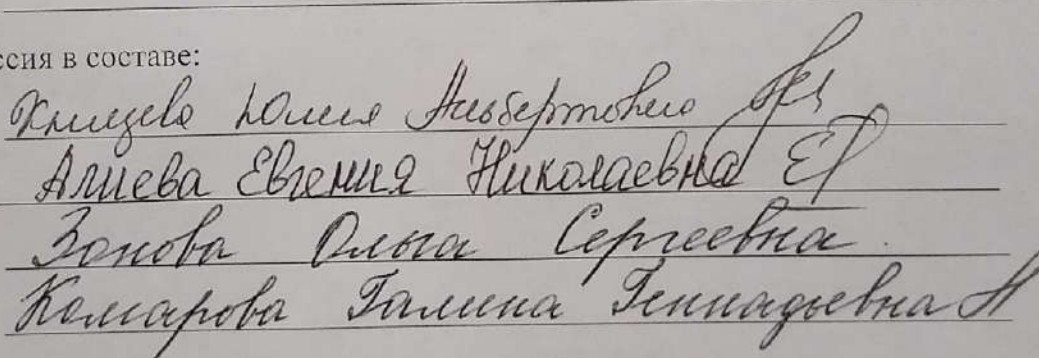 ссия в составе:
Юлия Альбертовна
Алиева Евгения Николаевна
Зонова Ольга Сергеевна
Комарова Галина Геннадьевна